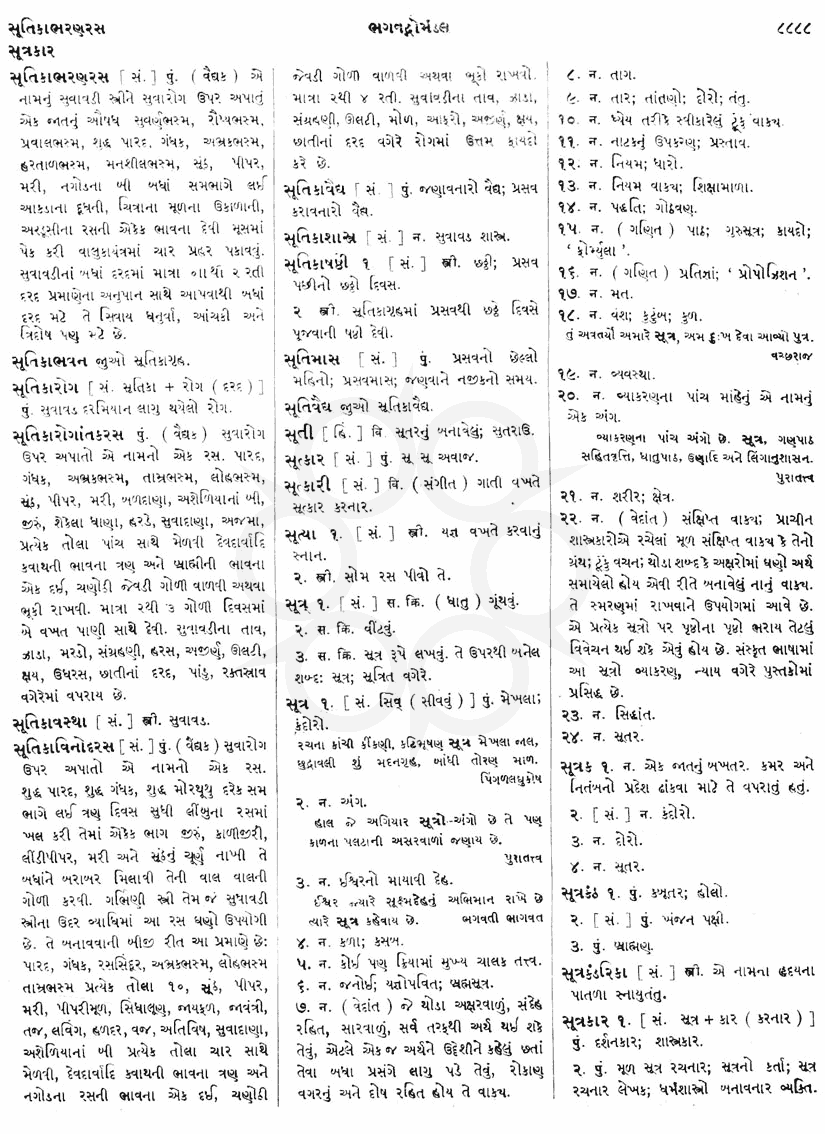 સૂતિકાભરણરસ
ભગવદ્ગોમંડલ
૮૮૮૮
સૂત્રકાર
સૂતિકાભરણરસ [ સં. ] પું. ( વૈદ્યક ) એ
નામનું સુવાવડી સ્ત્રીને સુવારોગ ઉપર અપાતું
એક જાતનું ઔષધ સુવર્ણભસ્મ, રૌપ્યભસ્મ,
પ્રવાલભસ્મ, શુદ્ધ પારદ, ગંધક, અભ્રકભસ્મ,
હરતાળભસ્મ, મનશીલભસ્મ, સૂંઠ, પીપર,
મરી, નગોડના બી બધાં સમભાગે લઈ
આકડાના દૂધની, ચિત્રાના મૂળના ઉકાળાની,
અરડુસીના રસની એકેક ભાવના દેવી મૂસમાં
પેક કરી વાલુકાયંત્રમાં ચાર પ્રહર પકાવવું.
સુવાવડીનાં બધાં દરદમાં માત્રા ૦ાાથી ૨ રતી
દરદ પ્રમાણેના અનુપાન સાથે આપવાથી બધાં
દરદ મટે તે સિવાય ધનુર્વા, આંચકી અને
ત્રિદોષ પણ મટે છે.
સૂતિકાભવન જુઓ સૂતિકાગૃહ.
સૂતિકારોગ [ સં. સૂતિકા + રોગ ( દરદ ) ]
પું. સુવાવડ દરમિયાન લાગુ થયેલો રોગ.
સૂતિકારોગાંતકરસ પું. ( વૈદ્યક ) સુવારોગ
ઉપર અપાતો એ નામનો એક રસ. પારદ,
ગંધક, અભ્રકભસ્મ, તામ્રભસ્મ, લોહભસ્મ,
સૂંઠ, પીપર, મરી, બળદાણા, અશેળિયાનાં બી,
જીરું, શેકેલા ધાણા, હરડે, સુવાદાણા, અજમા,
પ્રત્યેક તોલા પાંચ સાથે મેળવી દેવદાર્વાદિ
ક્વાથની ભાવના ત્રણ અને બ્રાહ્મીની ભાવના
એક દઈ, ચણોઠી જેવડી ગોળી વાળવી અથવા
ભૂકી રાખવી. માત્રા ૨થી ૩ ગોળી દિવસમાં
બે વખત પાણી સાથે દેવી. સુવાવડીના તાવ,
ઝાડા, મરડો, સંગ્રહણી, હરસ, અજીર્ણ, ઊલટી,
ક્ષય, ઉધરસ, છાતીનાં દરદ, પાંડુ, રક્તસ્રાવ
વગેરેમાં વપરાય છે.
સૂતિકાવસ્થા [ સં. ] સ્ત્રી. સુવાવડ.
સૂતિકાવિનોદરસ [ સં. ] પું. ( વૈદ્યક ) સુવારોગ
ઉપર અપાતો એ નામનો એક રસ.
શુદ્ધ પારદ, શુદ્ધ ગંધક, શુદ્ધ મોરથૂથુ દરેક સમ
ભાગે લઈ ત્રણ દિવસ સુધી લીંબુના રસમાં
ખલ કરી તેમાં એકેક ભાગ જીરું, કાળીજીરી,
લીંડીપીપર, મરી અને સૂંઠનું ચૂર્ણ નાખી તે
બધાંને બરાબર મિલાવી તેની વાલ વાલની
ગોળી કરવી. ગર્ભિણી સ્ત્રી તેમ જ સુવાવડી
સ્ત્રીના ઉદર વ્યાધિમાં આ રસ ઘણો ઉપયોગી
છે. તે બનાવવાની બીજી રીત આ પ્રમાણે છે:
પારદ, ગંધક, રસસિંદૂર, અભ્રકભસ્મ, લોહભસ્મ
તામ્રભસ્મ પ્રત્યેક તોલા ૧૦, સૂંઠ, પીપર,
મરી, પીપરીમૂળ, સિંધાલૂણ, જાયફળ, જાવંત્રી,
તજ, લવિંગ, હળદર, વજ, અતિવિષ, સુવાદાણા,
અશેળિયાનાં બી પ્રત્યેક તોલા ચાર સાથે
મેળવી, દેવદાર્વાદિ ક્વાથની ભાવના ત્રણ અને
નગોડના રસની ભાવના એક દઈ, ચણોઠી
જેવડી ગોળી વાળવી અથવા ભૂકો રાખવો.
માત્રા ૨થી ૪ રતી. સુવાવડીના તાવ, ઝાડા,
સંગ્રહણી, ઊલટી, મોળ, આફરો, અજીર્ણ, ક્ષય,
છાતીનાં દરદ વગેરે રોગમાં ઉત્તમ ફાયદો
કરે છે.
સૂતિકાવૈદ્ય [ સં. ] પું. જણાવનારો વૈદ્ય; પ્રસવ
કરાવનારો વૈદ્ય.
સૂતિકાશાસ્ત્ર [ સં. ] ન. સુવાવડ શાસ્ત્ર.
સૂતિકાષષ્ઠી ૧ [ સં. ] સ્ત્રી. છઠ્ઠી; પ્રસવ
પછીનો છઠ્ઠો દિવસ.
૨ સ્ત્રી. સૂતિકાગૃહમાં પ્રસવથી છઠ્ઠે દિવસે
પૂજવાની ષષ્ઠી દેવી.
સૂતિમાસ [ સં. ] પું. પ્રસવનો છેલ્લો
મહિનો; પ્રસવમાસ; જણવાને નજીકનો સમય.
સૂતિવૈદ્ય જુઓ સૂતિકાવૈદ્ય.
સૂતી [ હિં. ] વિ. સૂતરનું બનાવેલું; સુતરાઉ.
સૂત્કાર [ સં. ] પું. સૂ સૂ અવાજ.
સૂત્કારી [ સં. ] વિ. ( સંગીત ) ગાતી વખતે
સૂત્કાર કરનાર.
સૂત્યા ૧ [ સં. ] સ્ત્રી. યજ્ઞ વખતે કરવાનું
સ્નાન.
૨. સ્ત્રી. સોમ રસ પીવો તે.
સૂત્ર્ ૧. [ સં. ] સ. ક્રિ. ( ધાતુ ) ગૂંથવું.
૨. સ. ક્રિ. વીંટવું.
૩. સ. ક્રિ. સૂત્ર રૂપે લખવું. તે ઉપરથી બનેલ
શબ્દ: સૂત્ર; સૂત્રિત વગેરે.
સૂત્ર ૧. [ સં. સિવ્ ( સીવવું ) ] પું. મેખલા;
કંદોરો.
રચના કાંચી કીંકણી, કટિભૂષણ સૂત્ર મેખલા જાલ,
ક્ષુદ્રાવલી શું મદનગૃહ, બાંધી તોરણ માળ.
પિંગળલઘુકોષ
૨. ન. અંગ.
હાલ જે અગિયાર સૂત્રો-અંગો છે તે પણ
કાળના પલટાની અસરવાળાં જણાય છે.
પુરાતત્ત્વ
૩. ન. ઈશ્વરનો માયાવી દેહ.
ઈશ્વર જ્યારે સૂક્ષ્મદેહનું અભિમાન રાખે છે
ત્યારે સૂત્ર કહેવાય છે. ભગવતી ભાગવત
૪. ન. કળા; કસબ.
૫. ન. કોઈ પણ ક્રિયામાં મુખ્ય ચાલક તત્ત્વ.
૬. ન. જનોઈ; યજ્ઞોપવિત; બ્રહ્મસૂત્ર.
૭. ન. ( વેદાંત ) જે થોડા અક્ષરવાળું, સંદેહ
રહિત, સારવાળું, સર્વ તરફથી અર્થ થઈ શકે
તેવું, એટલે એક જ અર્થને ઉદ્દેશીને કહેલું છતાં
તેવા બધા પ્રસંગે લાગુ પડે તેવું, રોકાણ
વગરનું અને દોષ રહિત હોય તે વાક્ય.
૮. ન. તાગ.
૯. ન. તાર; તાંતણો; દોરો; તંતુ.
૧૦. ન. ધ્યેય તરીકે સ્વીકારેલું ટૂંકું વાક્ય.
૧૧. ન. નાટકનું ઉપકરણ; પ્રસ્તાવ.
૧૨. ન. નિયમ; ધારો.
૧૩. ન. નિયમ વાક્ય; શિક્ષામાળા.
૧૪. ન. પદ્ધતિ; ગોઠવણ.
૧૫. ન. ( ગણિત ) પાઠ; ગુરુસૂત્ર; કાયદો;
‘ ફોર્મ્યુલા ’.
૧૬. ન. ( ગણિત ) પ્રતિજ્ઞા; ‘ પ્રોપોઝિશન ’.
૧૭. ન. મત.
૧૮. ન. વંશ; કુટુંબ; કુળ.
તું અવતર્યો અમારે સૂત્ર, અમ દુઃખ દેવા આવ્યો પુત્ર.
વચ્છરાજ
૧૯. ન. વ્યવસ્થા.
૨૦. ન. વ્યાકરણના પાંચ માંહેનું એ નામનું
એક અંગ.
વ્યાકરણના પાંચ અંગો છે. સૂત્ર, ગણપાઠ
સહિતવૃત્તિ, ધાતુપાઠ, ઉણાદિ અને લિંગાનુશાસન.
પુરાતત્ત્વ
૨૧. ન. શરીર; ક્ષેત્ર.
૨૨. ન. ( વેદાંત ) સંક્ષિપ્ત વાક્ય; પ્રાચીન
શાસ્ત્રકારોએ રચેલાં મૂળ સંક્ષિપ્ત વાક્ય કે તેનો
ગ્રંથ; ટૂંકું વચન; થોડા શબ્દ કે અક્ષરોમાં ઘણો અર્થ
સમાયેલો હોય એવી રીતે બનાવેલું નાનું વાક્ય.
તે સ્મરણમાં રાખવાને ઉપયોગમાં આવે છે.
એ પ્રત્યેક સૂત્રો પર પૃષ્ઠોના પૃષ્ઠો ભરાય તેટલું
વિવેચન થઈ શકે એવું હોય છે. સંસ્કૃત ભાષામાં
આ સૂત્રો વ્યાકરણ, ન્યાય વગેરે પુસ્તકોમાં
પ્રસિદ્ધ છે.
૨૩. ન. સિદ્ધાંત.
૨૪. ન. સૂતર.
સૂત્રક ૧. ન. એક જાતનું બખતર. કમર અને
નિતંબનો પ્રદેશ ઢાંકવા માટે તે વપરાતું હતું.
૨. [ સં. ] ન. કંદોરો.
૩. ન. દોરો.
૪. ન. સૂતર.
સૂત્રકંઠ ૧. પું. કબૂતર; હોલો.
૨. [ સં. ] પું. ખંજન પક્ષી.
૩. પું. બ્રાહ્મણ.
સૂત્રકંડરિકા [ સં. ] સ્ત્રી. એ નામના હૃદયના
પાતળા સ્નાયુતંતુ.
સૂત્રકાર ૧. [ સં. સૂત્ર + કાર ( કરનાર ) ]
પું. દર્શનકાર; શાસ્ત્રકાર.
૨. પું. મૂળ સૂત્ર રચનાર; સૂત્રનો કર્તા; સૂત્ર
રચનાર લેખક; ધર્મશાસ્ત્રો બનાવનાર વ્યક્તિ.